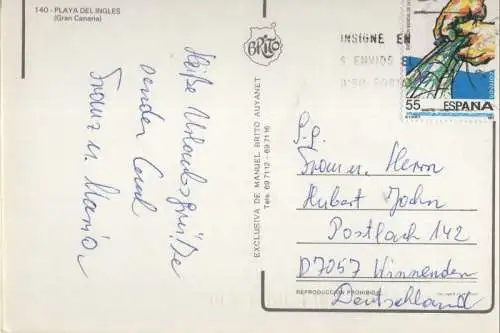 140 - PLAYA DEL INGLES
(Gran Canaria)
Heiße Urlaubsgrüße
senden Euch
Franz u. Maria
BRITO
EXCLUSIVA DE MANUEL BRITO AUYANET
Tels. 69 7112 - 69 7116
INSIGNE EN
S ENVIOS
55 ESPAÑA
Frau u. Herrn
Hubert John
Postfach 142
D7057 Winnenden
Deutschland
REPRODUCCION PROHIBIDA